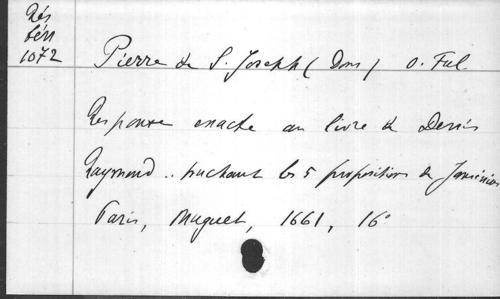 Rés
1072
Pierre de S. Joseph (Dom) O. Ful.
Response exacte au livre de Denis
Raymond .. touchant les 5 propositions de Jansénius
Paris, Muguet, 1661, 16°